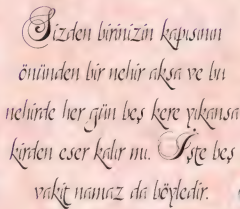 Sizden birinizin kapısının
önünden bir nehir aksa ve bu
nehirde her gün beş kere yıkansa
kirden eser kalır mı. İşte beş
vakit namaz da böyledir.